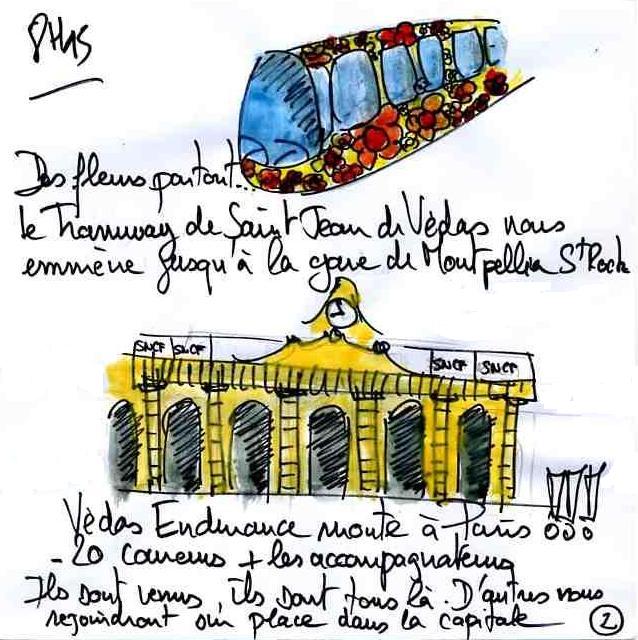 Des fleurs partout...
le Tramway de Saint Jean de Védas nous
emmène jusqu'à la gare de Montpellier St Roch
SNCF SNCF SNCF SNCF
Védas Endurance monte à Paris !!!
- 20 coureurs + les accompagnateurs
Ils sont venus, ils sont tous là. D'autres nous
rejoindront sur place dans la capitale
2